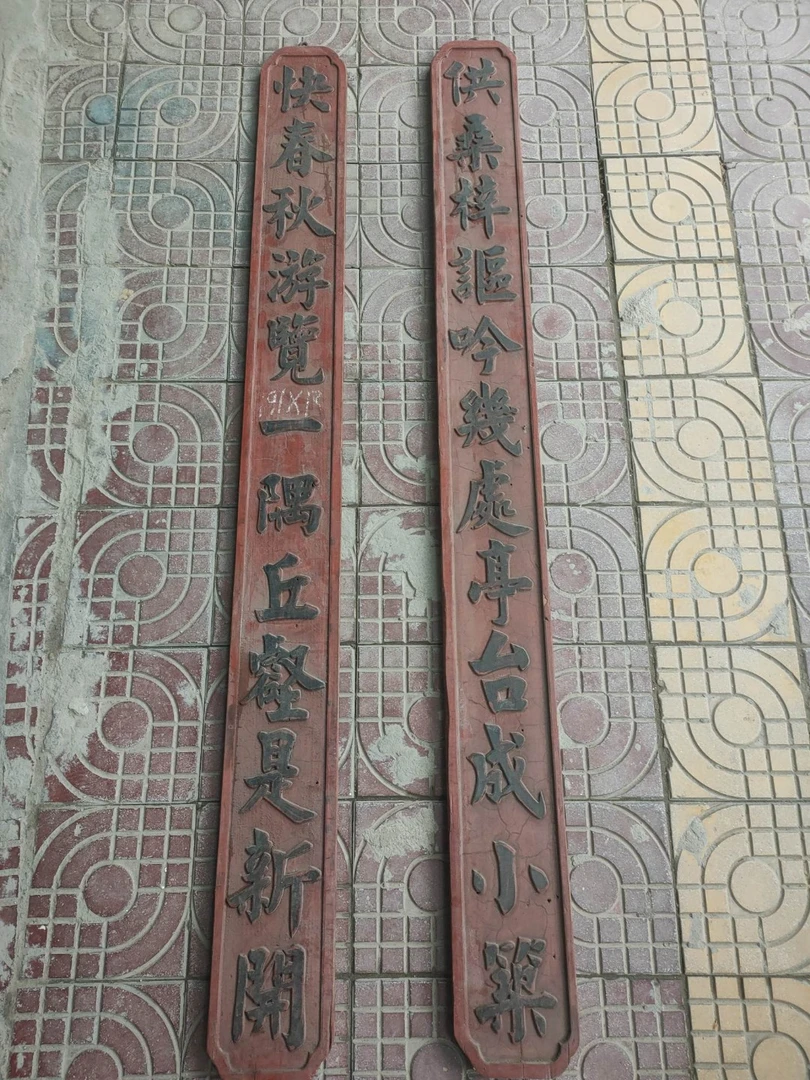 供桑梓謳吟幾處亭台成小築
快春秋游覽一隅丘壑是新開